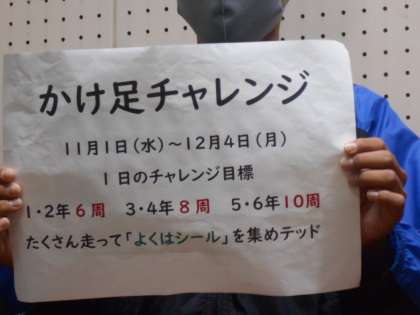 かけ足チャレンジ
11月1日(水)~12月4日(月)
1日のチャレンジ目標
1・2年6周 3・4年8周 5・6年10周
たくさん走って「よくはシール」を集めテッド